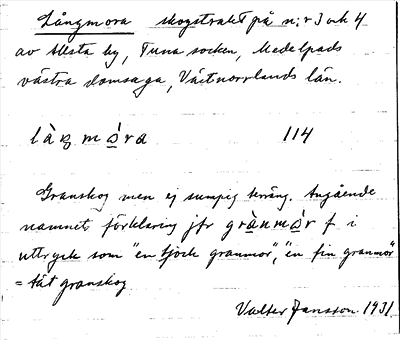 Långmora skogstrakt på n:r 3 och 4
av Allsta by, Tuna socken, Medelpads
västra domsaga, Västnorrlands län.
làŋmòra 114
Granskog men ej sumpig terräng. Angående
namnets förklaring jfr grànmòr f i
uttryck som "en tjock granmor", "en fin granmor"
= tät granskog
Valter Jansson 1931